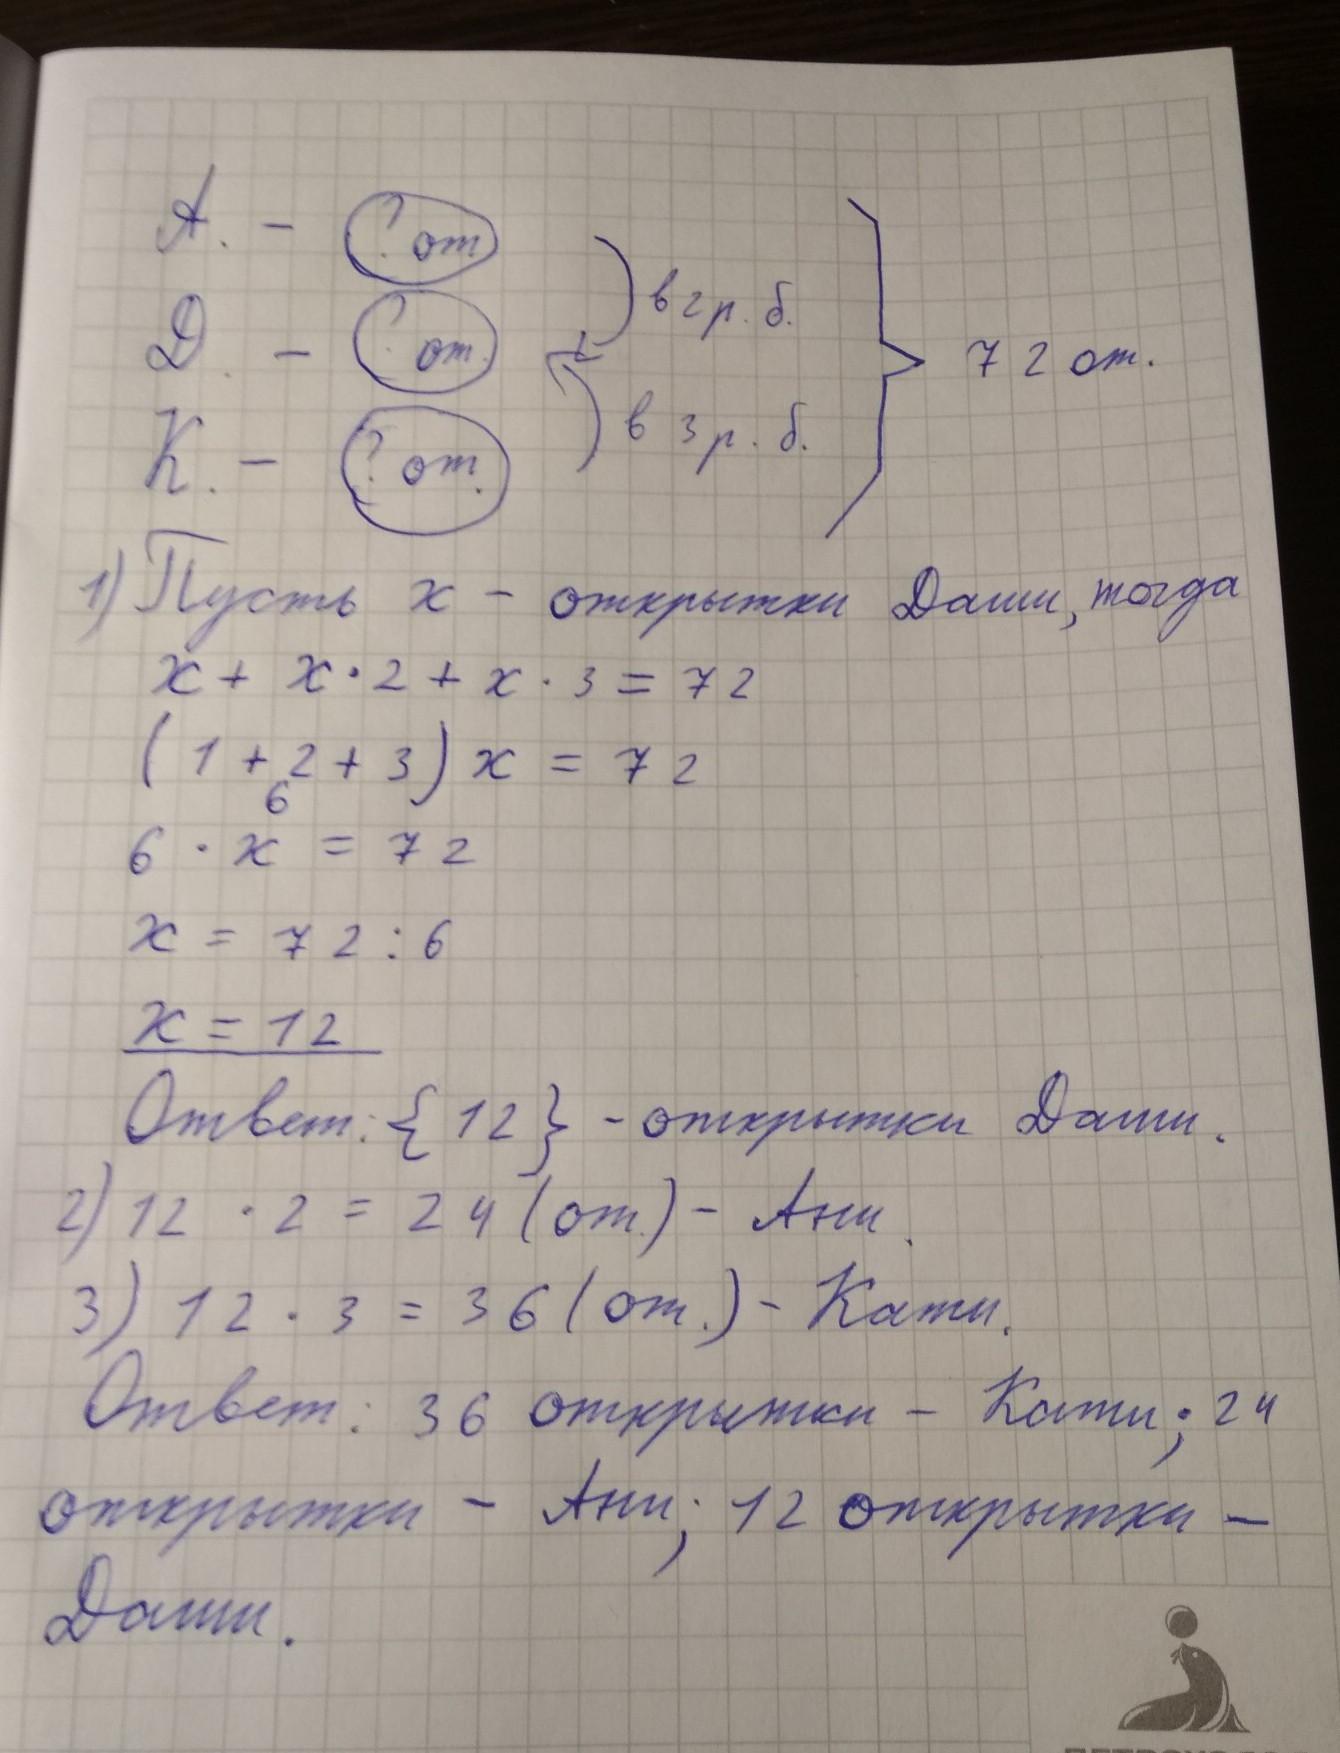 А. - ? от
в 2 р. б.
Д. - ? от.
72 от.
К. - ? от.
в 3 р. б.
1) Пусть х - открытки Даши, тогда
х + х · 2 + х · 3 = 72
(1 + 2 + 3) х = 72
6
6 · х = 72
х = 72 : 6
х = 12
Ответ: {12} - открытки Даши.
2) 12 · 2 = 24 (от.) - Ани.
3) 12 · 3 = 36 (от.) - Кати.
Ответ: 36 открытки - Кати; 24
открытки - Ани; 12 открытки -
Даши.